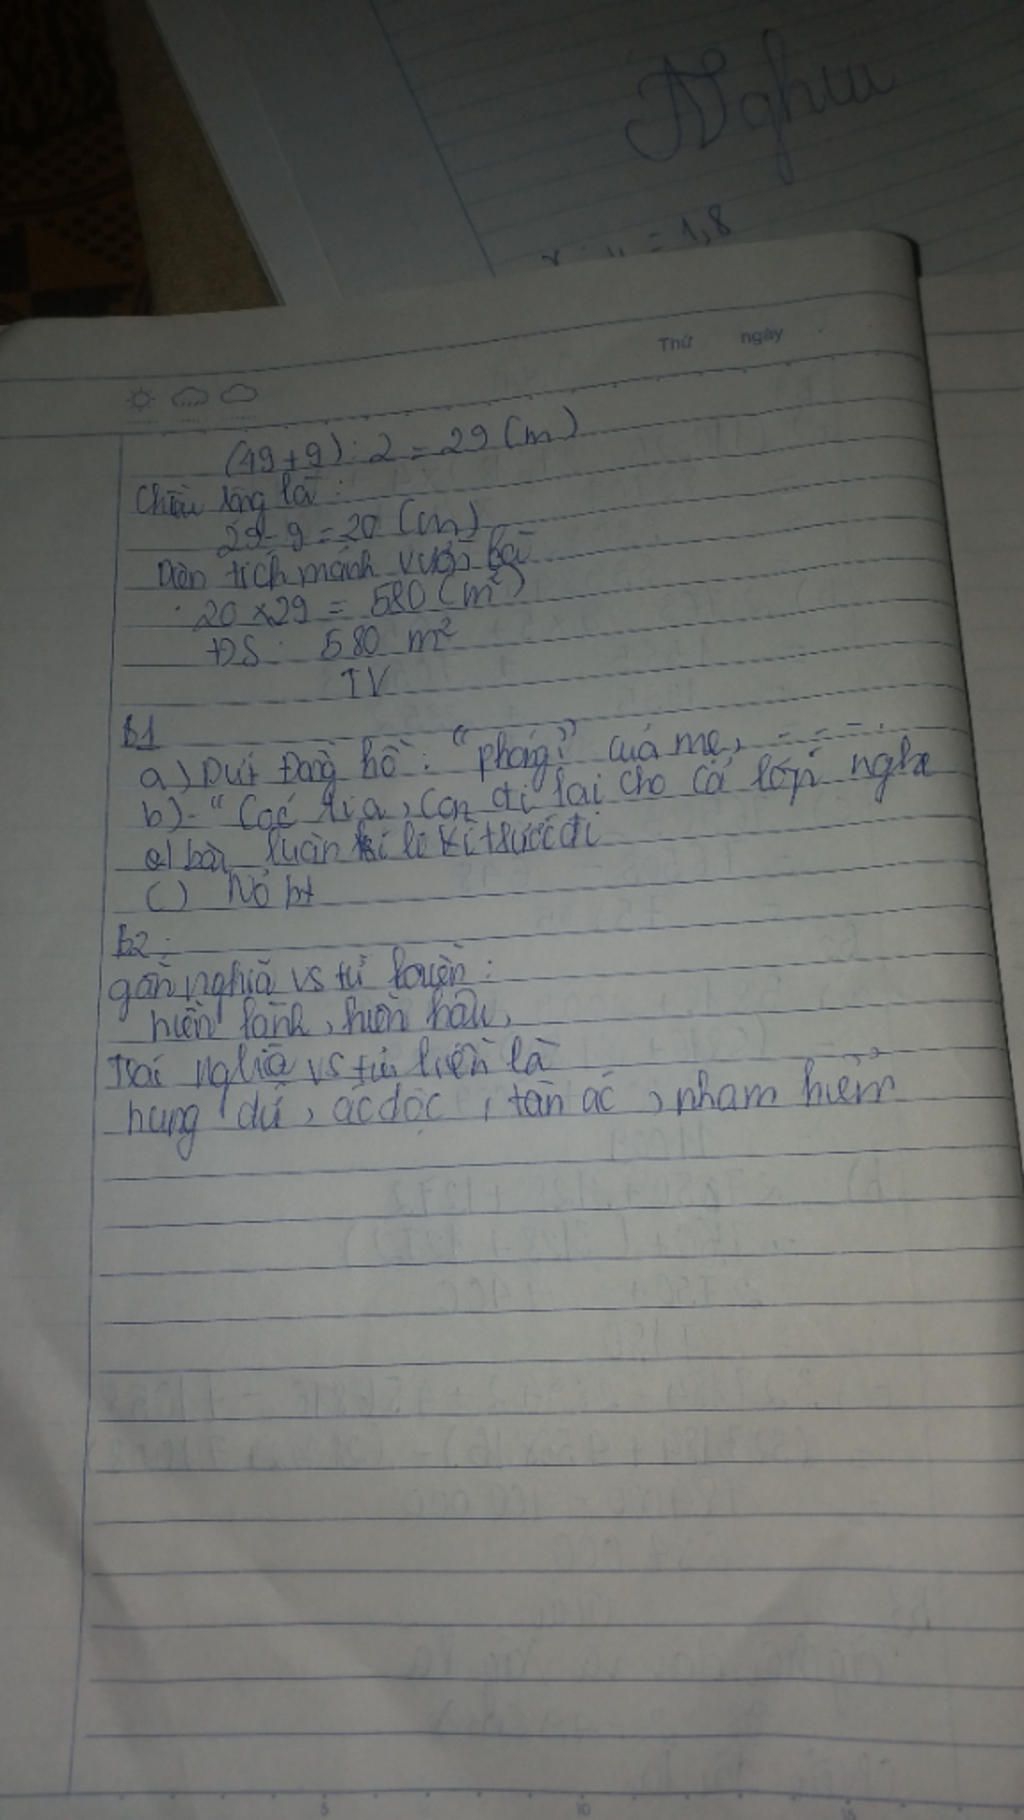 Nghiu
= 1,8
Thứ ngày
(49+9) : 2 = 29 (m)
Chiều rộng là :
29 - 9 = 20 (m)
Diện tích mảnh vườn là
20 x 29 = 580 (m²)
ĐS : 580 m²
TV
B1
a) Dứt đồng hồ : "phóng" của mẹ,
b) - " Cóc tía, con đi lại cho cả lớp nghe
bài luận kí trước đi
c) Nó
B2 :
gần nghĩa vs từ :
hiền lành, hiền hậu,
Trái nghĩa vs từ hiền là
hung dữ, ác độc, tàn ác, nham hiểm
5 10 15